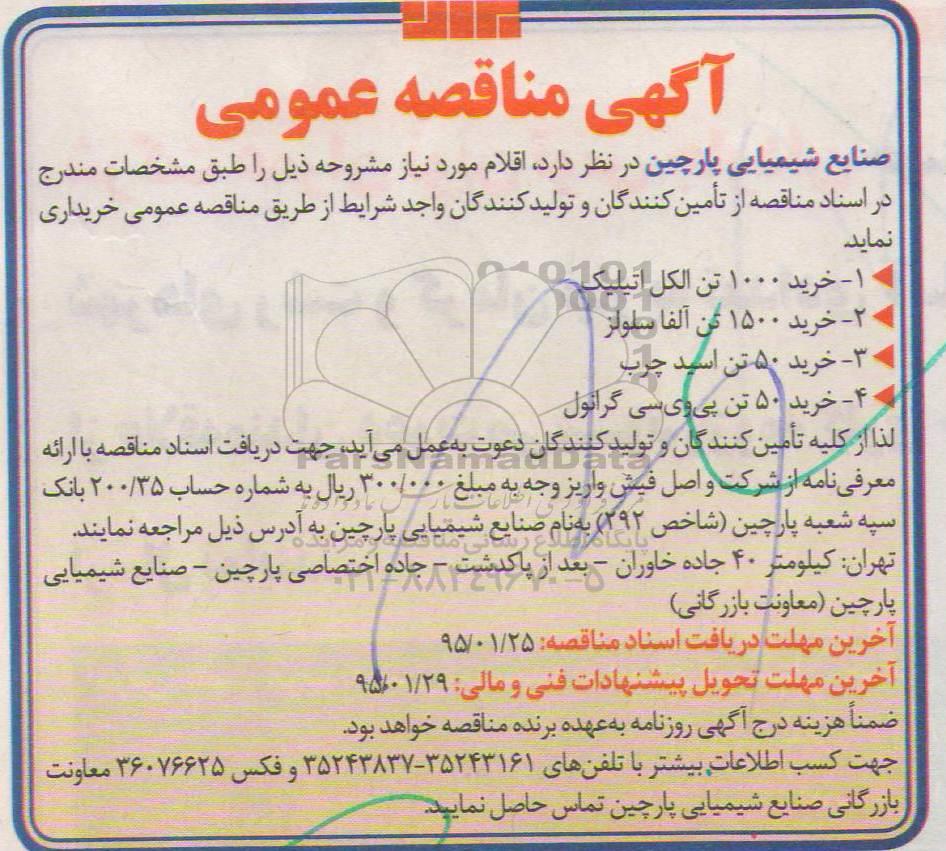 آگهی مناقصه عمومی
صنایع شیمیایی پارچین در نظر دارد، اقلام مورد نیاز مشروحه ذیل را طبق مشخصات مندرج
در اسناد مناقصه از تأمین‌کنندگان و تولیدکنندگان واجد شرایط از طریق مناقصه عمومی خریداری
نماید.
۱- خرید ۱۰۰۰ تن الکل اتیلیک
۲- خرید ۱۵۰۰ تن آلفا سلولز
۳- خرید ۵۰ تن اسید چرب
۴- خرید ۵۰ تن پی‌وی‌سی گرانول
لذا از کلیه تأمین‌کنندگان و تولیدکنندگان دعوت به‌عمل می‌آید، جهت دریافت اسناد مناقصه با ارائه
معرفی‌نامه از شرکت و اصل فیش واریز وجه به مبلغ ۳۰۰/۰۰۰ ریال به شماره حساب ۲۰۰/۳۵ بانک
سپه شعبه پارچین (شاخص ۲۹۲) به‌نام صنایع شیمیایی پارچین به آدرس ذیل مراجعه نمایند.
تهران: کیلومتر ۴۰ جاده خاوران - بعد از پاکدشت - جاده اختصاصی پارچین - صنایع شیمیایی
پارچین (معاونت بازرگانی)
آخرین مهلت دریافت اسناد مناقصه: ۹۵/۰۱/۲۵
آخرین مهلت تحویل پیشنهادات فنی و مالی: ۹۵/۰۱/۲۹
ضمناً هزینه درج آگهی روزنامه به‌عهده برنده مناقصه خواهد بود.
جهت کسب اطلاعات بیشتر با تلفن‌های ۳۵۲۴۳۱۶۱-۳۵۲۴۳۸۳۷ و فکس ۳۶۰۷۶۶۲۵ معاونت
بازرگانی صنایع شیمیایی پارچین تماس حاصل نمایید.
ParsNamadData
پایگاه اطلاع رسانی مناقصه و مزایده
۰۲۱-۸۸۳۴۹۶۷۰-۵